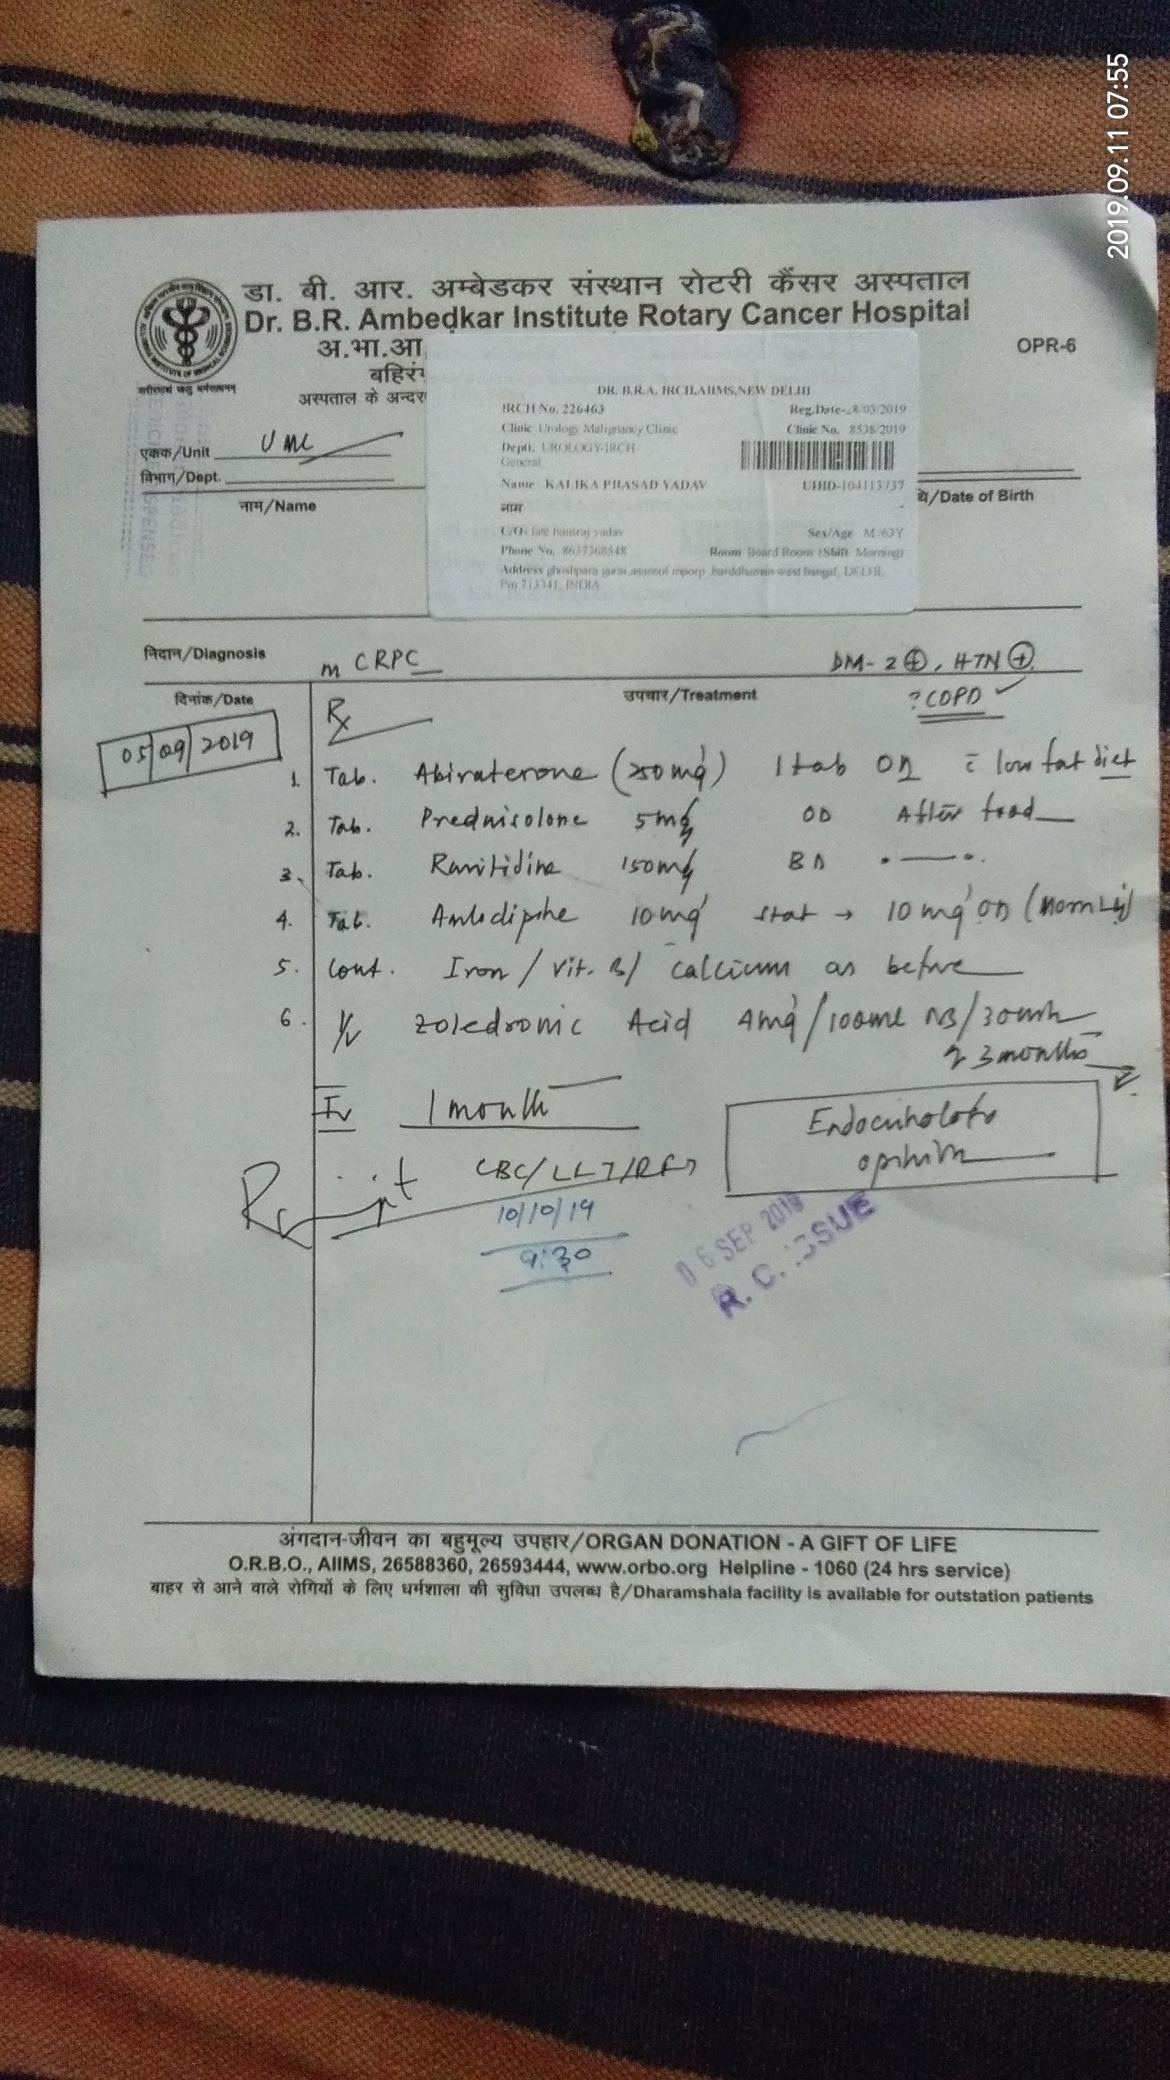 2019.09.11 07:55
डा. बी. आर. अम्बेडकर संस्थान रोटरी कैंसर अस्पताल
Dr. B.R. Ambedkar Institute Rotary Cancer Hospital
अ.भा.आ
OPR-6
बहिरं
अस्पताल के अन्दर
DR. B.R.A. IRCH,AIIMS,NEW DELHI
IRCH No. 226463 Reg.Date- 8/03/2019
Clinic Urology Malignancy Clinic Clinic No. 8538/2019
Deptt. UROLOGY-IRCH
General
Name KALIKA PRASAD YADAV UHID-104113737
नाम
C/O- late bansraj yadav Sex/Age M/63Y
Phone No. 8637368548 Room Board Room (Shift Morning)
Address ghoshpara gurai,asansol mporp ,barddhaman west bangal, DELHI,
Pin 713341, INDIA
एकक/Unit UMC
विभाग/Dept.
नाम/Name /Date of Birth
निदान/Diagnosis m CRPC DM-2 ⊕, HTN ⊕
दिनांक/Date Rx उपचार/Treatment ? COPD ✓
05/09/2019
1. Tab. Abiraterone (250mg) 1 tab OD c̄ low fat diet
2. Tab. Prednisolone 5mg OD After food
3. Tab. Ranitidine 150mg BD
4. Tab. Amlodipine 10mg stat → 10mg OD
5. Cont. Iron / Vit. / Calcium as before
6. Zoledronic Acid 4mg/100ml NS/30min
3 months
1 month
Endocrinology
opinion
CBC/LFT/RFT
10/10/19
9:30
06 SEP 2019
R. C. ISSUE
अंगदान-जीवन का बहुमूल्य उपहार/ORGAN DONATION - A GIFT OF LIFE
O.R.B.O., AIIMS, 26588360, 26593444, www.orbo.org Helpline - 1060 (24 hrs service)
बाहर से आने वाले रोगियों के लिए धर्मशाला की सुविधा उपलब्ध है/Dharamshala facility is available for outstation patients